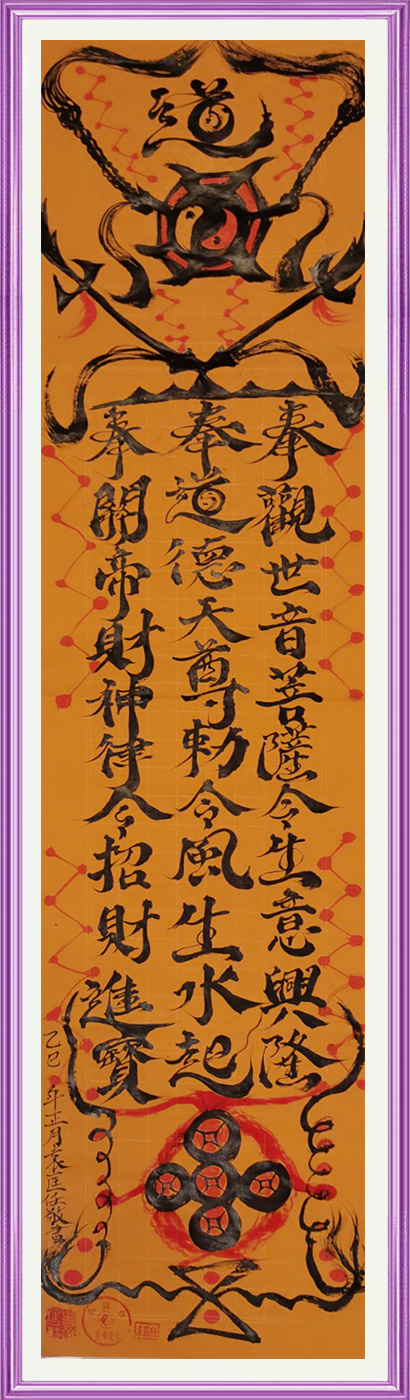 道
奉觀世音菩薩令生意興隆
奉道德天尊勅令風生水起
奉關帝財神律令招財進寶
乙巳年正月袁匡任敬書